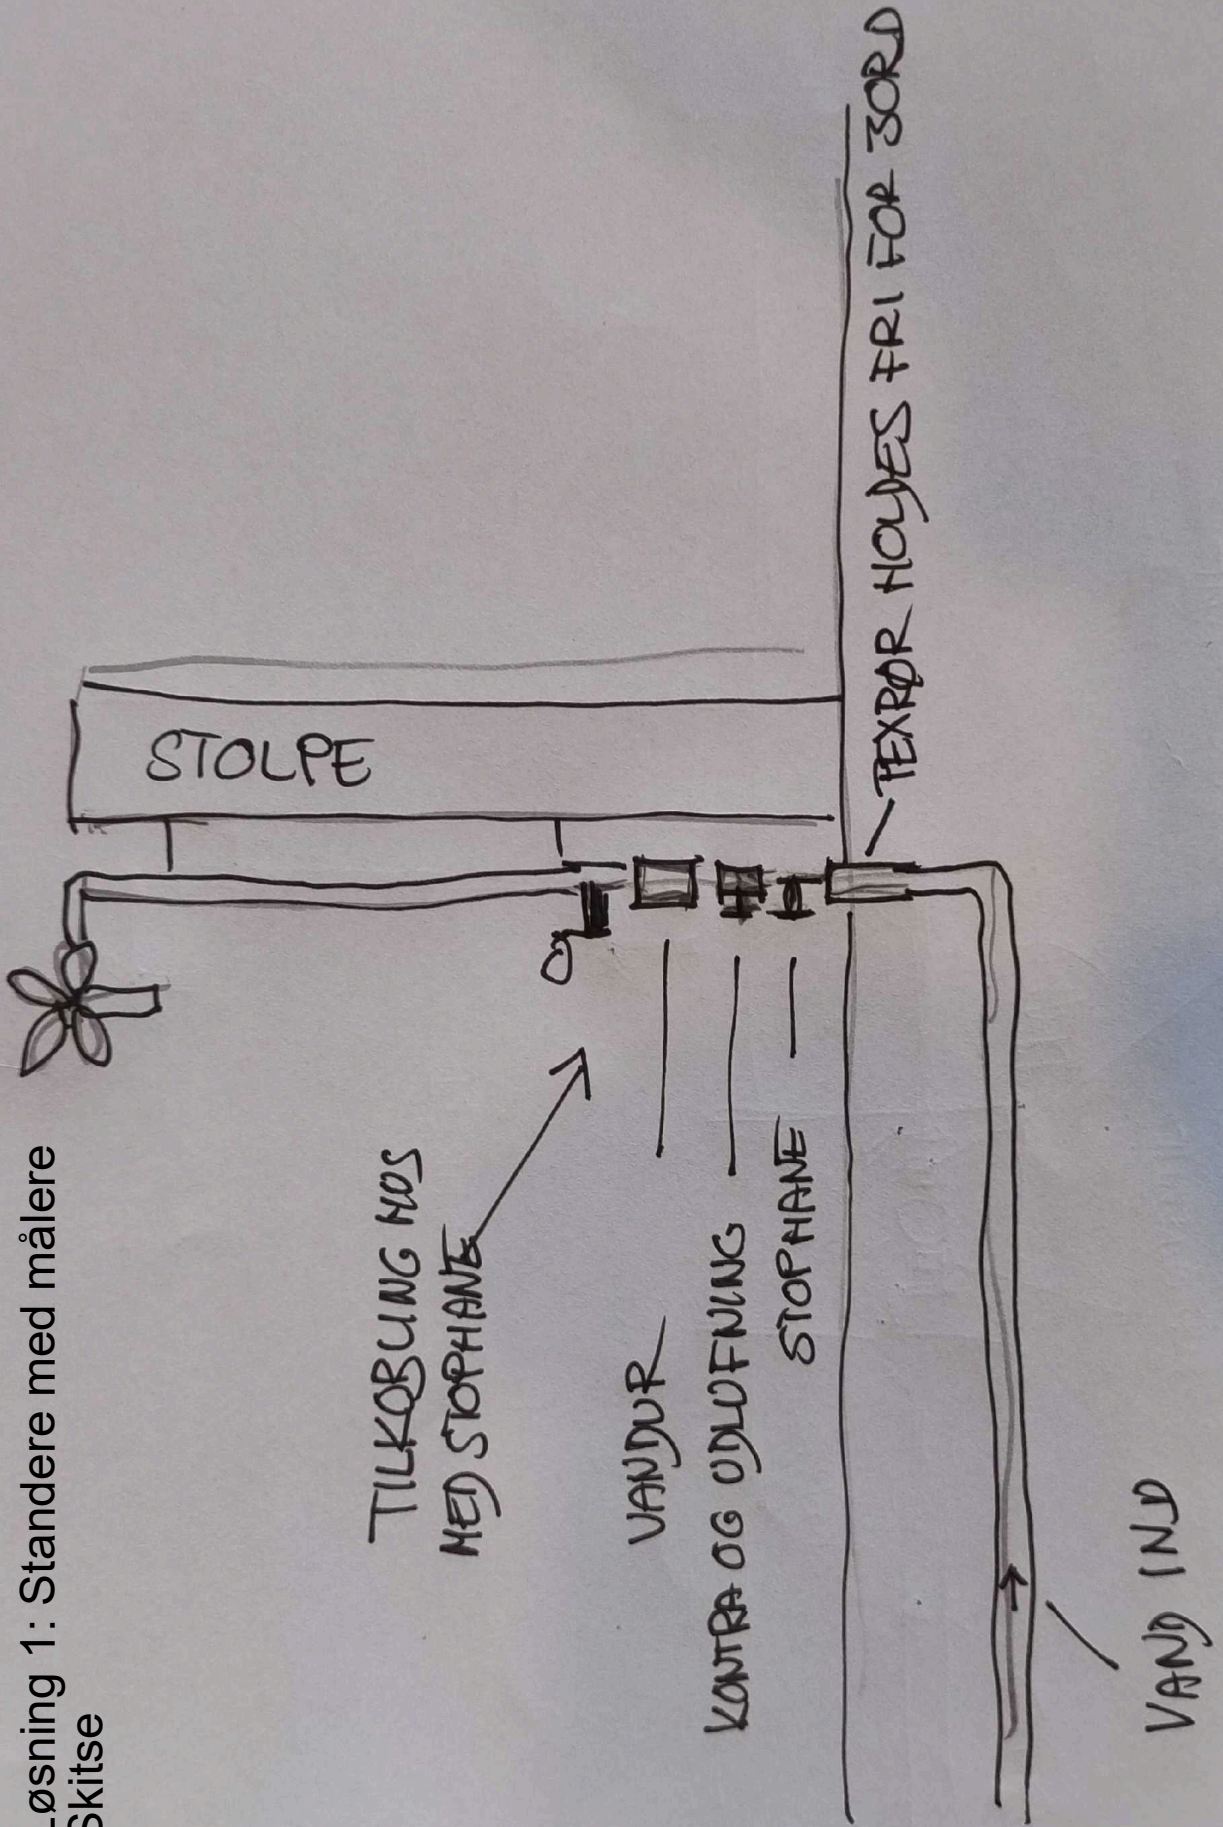 Løsning 1: Standere med målere
Skitse
STOLPE
TILKOBLING HOS
MED STOPHANE
VANDUR
KONTRA OG UDLUFNING
STOPHANE
PEXRØR HOLDES FRI FOR JORD
VAND IND